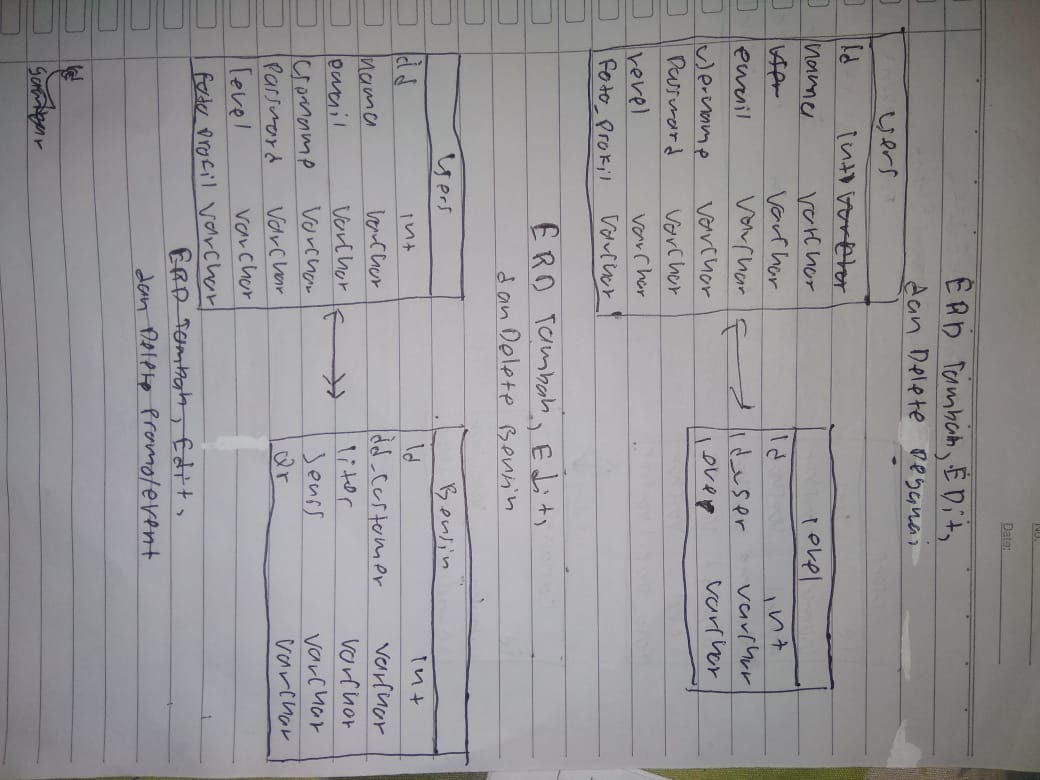 No:
Date:
ERD Tambah, EDit,
dan Delete Pegawai
users
id int varchar
nama varchar
user varchar
email varchar
username varchar
Password varchar
level varchar
foto_profil varchar
level
id int
id_user varchar
level varchar
ERD Tambah, Edit,
dan Delete Bensin
users
id int
nama varchar
email varchar
username varchar
Password varchar
level varchar
foto_profil varchar
Bensin
id int
id_customer varchar
liter varchar
Jenis varchar
Qr varchar
ERD Tambah, Edit,
dan Delete Promo/event
id
gambar